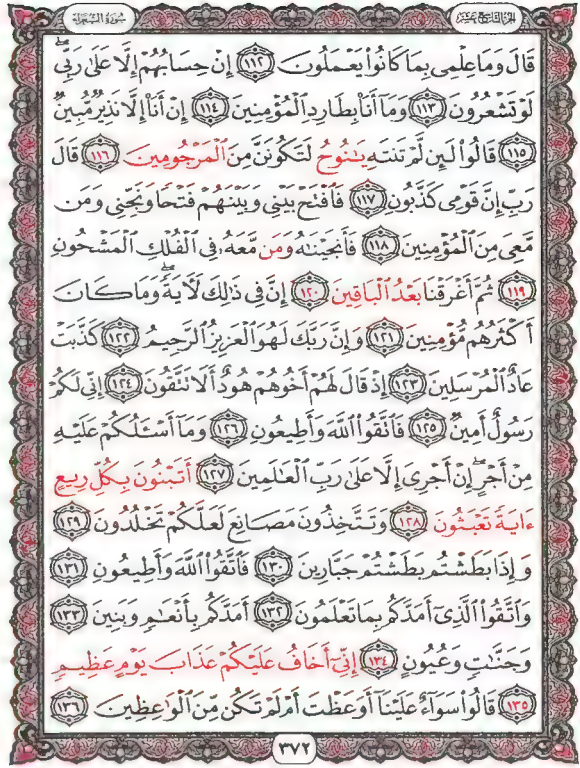 الجزء التاسع عشر سورة الشعراء
قَالَ وَمَا عِلْمِى بِمَا كَانُوا۟ يَعْمَلُونَ ١١٢ إِنْ حِسَابُهُمْ إِلَّا عَلَىٰ رَبِّى ۖ
لَوْ تَشْعُرُونَ ١١٣ وَمَآ أَنَا۠ بِطَارِدِ ٱلْمُؤْمِنِينَ ١١٤ إِنْ أَنَا۠ إِلَّا نَذِيرٌ مُّبِينٌ
١١٥ قَالُوا۟ لَئِن لَّمْ تَنتَهِ يَـٰنُوحُ لَتَكُونَنَّ مِنَ ٱلْمَرْجُومِينَ ١١٦ قَالَ
رَبِّ إِنَّ قَوْمِى كَذَّبُونِ ١١٧ فَٱفْتَحْ بَيْنِى وَبَيْنَهُمْ فَتْحًا وَنَجِّنِى وَمَن
مَّعِىَ مِنَ ٱلْمُؤْمِنِينَ ١١٨ فَأَنجَيْنَـٰهُ وَمَن مَّعَهُۥ فِى ٱلْفُلْكِ ٱلْمَشْحُونِ
١١٩ ثُمَّ أَغْرَقْنَا بَعْدُ ٱلْبَاقِينَ ١٢٠ إِنَّ فِى ذَٰلِكَ لَـَٔايَةً ۖ وَمَا كَانَ
أَكْثَرُهُم مُّؤْمِنِينَ ١٢١ وَإِنَّ رَبَّكَ لَهُوَ ٱلْعَزِيزُ ٱلرَّحِيمُ ١٢٢ كَذَّبَتْ
عَادٌ ٱلْمُرْسَلِينَ ١٢٣ إِذْ قَالَ لَهُمْ أَخُوهُمْ هُودٌ أَلَا تَتَّقُونَ ١٢٤ إِنِّى لَكُمْ
رَسُولٌ أَمِينٌ ١٢٥ فَٱتَّقُوا۟ ٱللَّهَ وَأَطِيعُونِ ١٢٦ وَمَآ أَسْـَٔلُكُمْ عَلَيْهِ
مِنْ أَجْرٍ ۖ إِنْ أَجْرِىَ إِلَّا عَلَىٰ رَبِّ ٱلْعَـٰلَمِينَ ١٢٧ أَتَبْنُونَ بِكُلِّ رِيعٍ
ءَايَةً تَعْبَثُونَ ١٢٨ وَتَتَّخِذُونَ مَصَانِعَ لَعَلَّكُمْ تَخْلُدُونَ ١٢٩
وَإِذَا بَطَشْتُم بَطَشْتُمْ جَبَّارِينَ ١٣٠ فَٱتَّقُوا۟ ٱللَّهَ وَأَطِيعُونِ ١٣١
وَٱتَّقُوا۟ ٱلَّذِىٓ أَمَدَّكُم بِمَا تَعْلَمُونَ ١٣٢ أَمَدَّكُم بِأَنْعَـٰمٍ وَبَنِينَ ١٣٣
وَجَنَّـٰتٍ وَعُيُونٍ ١٣٤ إِنِّىٓ أَخَافُ عَلَيْكُمْ عَذَابَ يَوْمٍ عَظِيمٍ
١٣٥ قَالُوا۟ سَوَآءٌ عَلَيْنَآ أَوَعَظْتَ أَمْ لَمْ تَكُن مِّنَ ٱلْوَٰعِظِينَ ١٣٦
٣٧٢